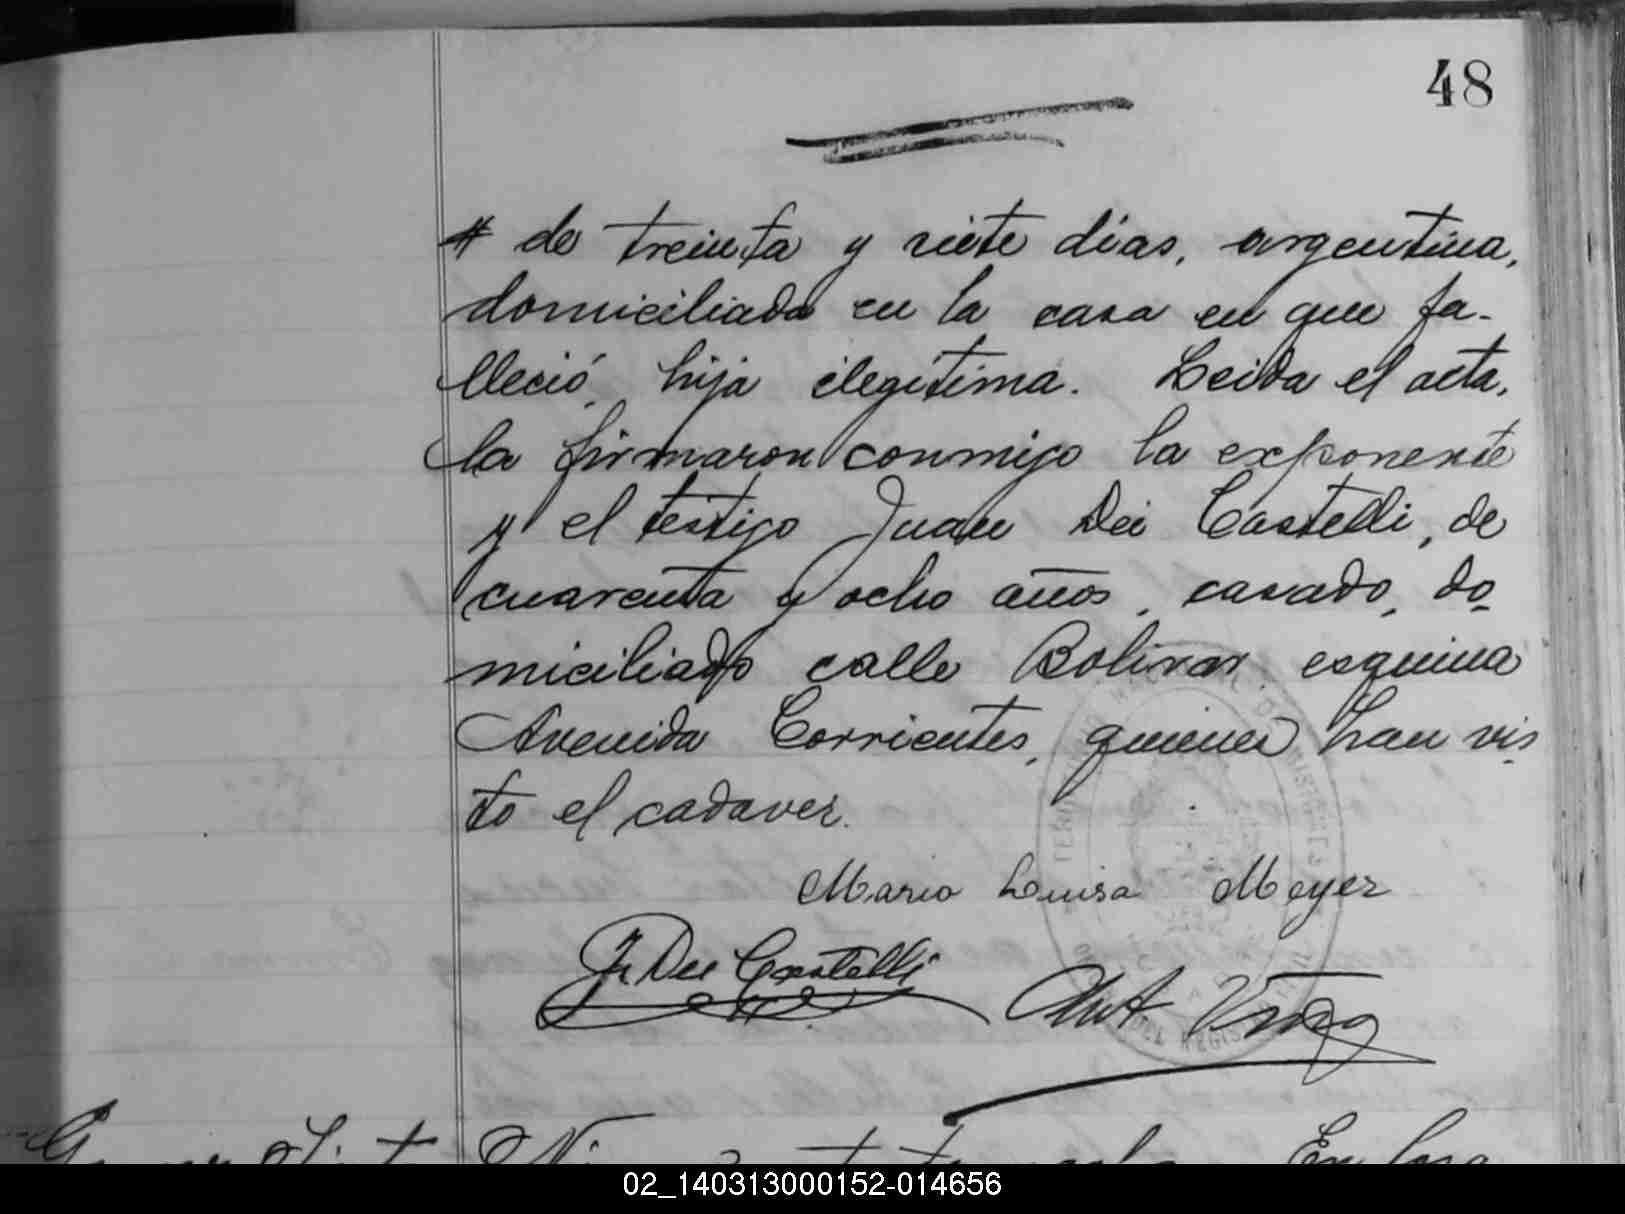 48
# de treinta y siete días, argentina,
domiciliada en la casa en que fa-
lleció, hija ilegítima. Leida el acta,
la firmaron conmigo la exponente
y el testigo Juan Dei Castelli, de
cuarenta y ocho años, casado, do-
miciliado calle Bolivar esquina
Avenida Corrientes, quienes han vis-
to el cadaver.
Maria Luisa Meyer
Jn Dei Castelli
Ant
02_140313000152-014656